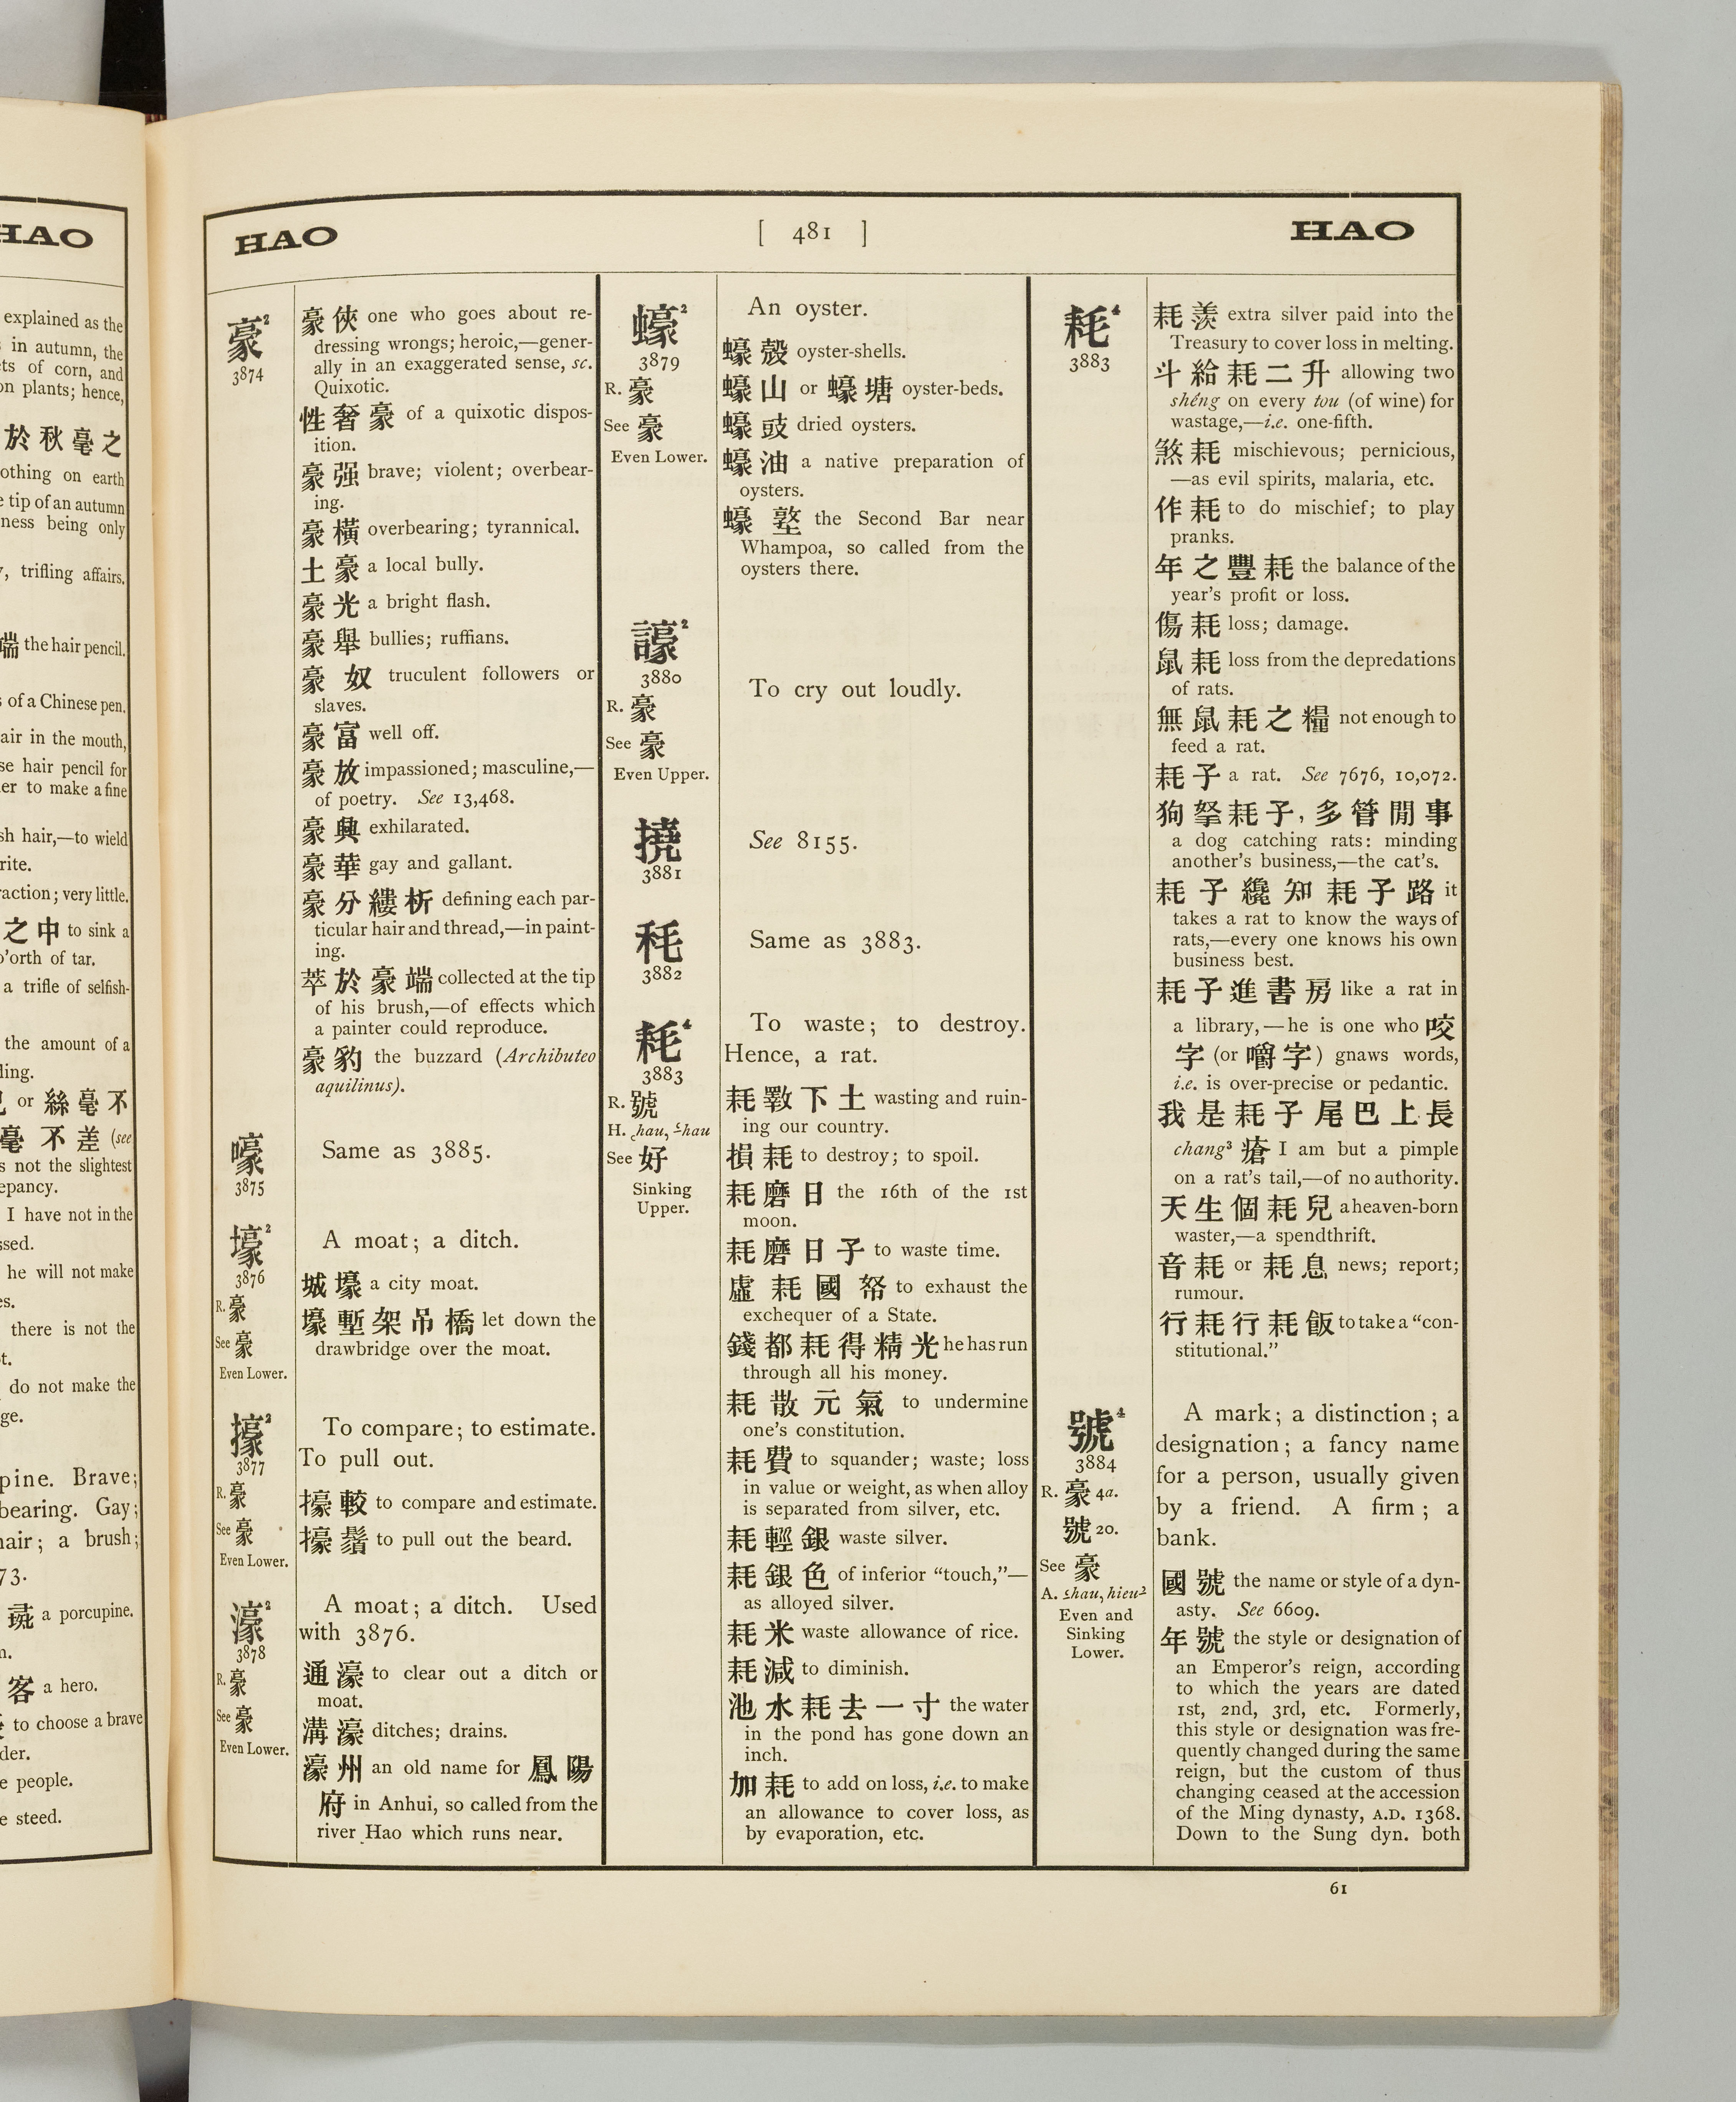 HAO
explained as the
in autumn, the
ts of corn, and
on plants; hence,
於秋毫之
othing on earth
tip of an autumn
ness being only
, trifling affairs.
端 the hair pencil.
of a Chinese pen.
air in the mouth,
se hair pencil for
er to make a fine
sh hair,—to wield
rite.
raction; very little.
之中 to sink a
o'orth of tar.
a trifle of selfish-
the amount of a
ling.
or 絲毫不
毫不差 (see
s not the slightest
epancy.
I have not in the
ssed.
he will not make
es.
there is not the
t.
do not make the
ge.
pine. Brave;
bearing. Gay;
hair; a brush;
73.
a porcupine.
客 a hero.
to choose a brave
der.
e people.
e steed.
HAO [ 481 ] HAO
豪²
3874
豪俠 one who goes about re-
dressing wrongs; heroic,—gener-
ally in an exaggerated sense, sc.
Quixotic.
性奢豪 of a quixotic dispos-
ition.
豪强 brave; violent; overbear-
ing.
豪橫 overbearing; tyrannical.
土豪 a local bully.
豪光 a bright flash.
豪舉 bullies; ruffians.
豪奴 truculent followers or
slaves.
豪富 well off.
豪放 impassioned; masculine,—
of poetry. See 13,468.
豪興 exhilarated.
豪華 gay and gallant.
豪分縷析 defining each par-
ticular hair and thread,—in paint-
ing.
萃於豪端 collected at the tip
of his brush,—of effects which
a painter could reproduce.
豪豹 the buzzard (Archibuteo
aquilinus).
嚎
3875
Same as 3885.
壕²
3876
R. 豪
See 豪
Even Lower.
A moat; a ditch.
城壕 a city moat.
壕塹架吊橋 let down the
drawbridge over the moat.
擤²
3877
R. 豪
See 豪
Even Lower.
To compare; to estimate.
To pull out.
㩝較 to compare and estimate.
㩝鬚 to pull out the beard.
濠²
3878
R. 豪
See 豪
Even Lower.
A moat; a ditch. Used
with 3876.
通濠 to clear out a ditch or
moat.
溝濠 ditches; drains.
濠州 an old name for 鳳陽
府 in Anhui, so called from the
river Hao which runs near.
蠔²
3879
R. 豪
See 豪
Even Lower.
An oyster.
蠔殼 oyster-shells.
蠔山 or 蠔塘 oyster-beds.
蠔豉 dried oysters.
蠔油 a native preparation of
oysters.
蠔 the Second Bar near
Whampoa, so called from the
oysters there.
譹²
3880
R. 豪
See 豪
Even Upper.
To cry out loudly.
撓
3881
See 8155.
秏
3882
Same as 3883.
耗⁴
3883
R. 號
H. hau, hau
See 好
Sinking
Upper.
To waste; to destroy.
Hence, a rat.
耗斁下土 wasting and ruin-
ing our country.
損耗 to destroy; to spoil.
耗磨日 the 16th of the 1st
moon.
耗磨日子 to waste time.
虛耗國帑 to exhaust the
exchequer of a State.
錢都耗得精光 he has run
through all his money.
耗散元氣 to undermine
one's constitution.
耗費 to squander; waste; loss
in value or weight, as when alloy
is separated from silver, etc.
耗輕銀 waste silver.
耗銀色 of inferior “touch,”—
as alloyed silver.
耗米 waste allowance of rice.
耗減 to diminish.
池水耗去一寸 the water
in the pond has gone down an
inch.
加耗 to add on loss, i.e. to make
an allowance to cover loss, as
by evaporation, etc.
耗⁴
3883
耗羨 extra silver paid into the
Treasury to cover loss in melting.
斗給耗二升 allowing two
shêng on every tou (of wine) for
wastage,—i.e. one-fifth.
煞耗 mischievous; pernicious,
—as evil spirits, malaria, etc.
作耗 to do mischief; to play
pranks.
年之豐耗 the balance of the
year's profit or loss.
傷耗 loss; damage.
鼠耗 loss from the depredations
of rats.
無鼠耗之糧 not enough to
feed a rat.
耗子 a rat. See 7676, 10,072.
狗拏耗子,多管閒事
a dog catching rats: minding
another's business,—the cat's.
耗子纔知耗子路 it
takes a rat to know the ways of
rats,—every one knows his own
business best.
耗子進書房 like a rat in
a library,—he is one who 咬
字 (or 嚼字) gnaws words,
i.e. is over-precise or pedantic.
我是耗子尾巴上長
chang³ 瘡 I am but a pimple
on a rat's tail,—of no authority.
天生個耗兒 a heaven-born
waster,—a spendthrift.
音耗 or 耗息 news; report;
rumour.
行耗行耗飯 to take a “con-
stitutional.”
號⁴
3884
R. 豪 4a.
號 20.
See 豪
A. hau, hieu²
Even and
Sinking
Lower.
A mark; a distinction; a
designation; a fancy name
for a person, usually given
by a friend. A firm; a
bank.
國號 the name or style of a dyn-
asty. See 6609.
年號 the style or designation of
an Emperor's reign, according
to which the years are dated
1st, 2nd, 3rd, etc. Formerly,
this style or designation was fre-
quently changed during the same
reign, but the custom of thus
changing ceased at the accession
of the Ming dynasty, A.D. 1368.
Down to the Sung dyn. both
61